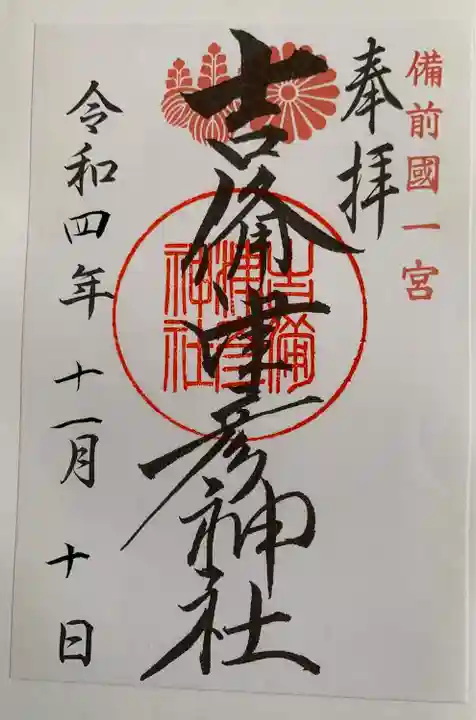 備前國一宮
奉拝
吉備津彦神社
吉備
津彦
神社
令和四年 十一月 十日